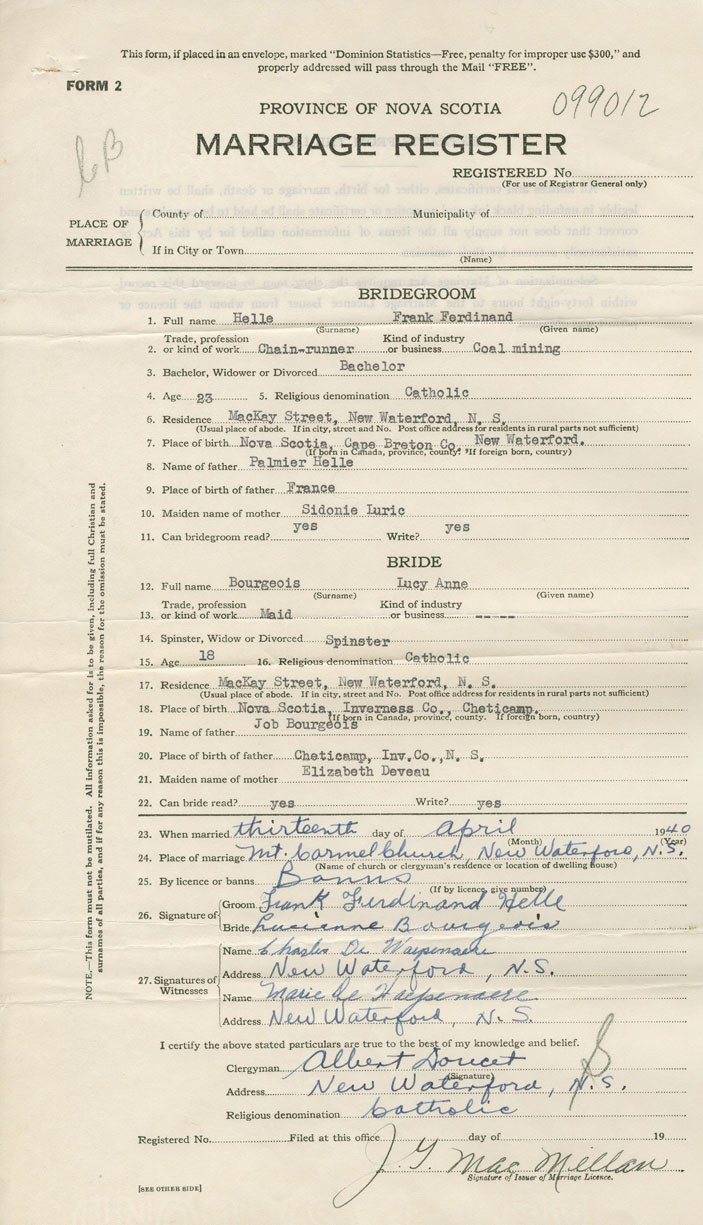 This form, if placed in an envelope, marked "Dominion Statistics—Free, penalty for improper use $300," and
properly addressed will pass through the Mail "FREE".
FORM 2
PROVINCE OF NOVA SCOTIA
099012
CB
MARRIAGE REGISTER
REGISTERED No.
(For use of Registrar General only)
PLACE OF MARRIAGE
County of Municipality of
If in City or Town
(Name)
BRIDEGROOM
1. Full name Helle Frank Ferdinand
(Surname) (Given name)
Trade, profession Kind of industry
2. or kind of work Chain-runner or business Coal mining
3. Bachelor, Widower or Divorced Bachelor
4. Age 23 5. Religious denomination Catholic
6. Residence MacKay Street, New Waterford, N. S.
(Usual place of abode. If in city, street and No. Post office address for residents in rural parts not sufficient)
7. Place of birth Nova Scotia, Cape Breton Co. New Waterford.
(If born in Canada, province, county. If foreign born, country)
8. Name of father Palmier Helle
9. Place of birth of father France
10. Maiden name of mother Sidonie Luric
11. Can bridegroom read? yes Write? yes
BRIDE
12. Full name Bourgeois Lucy Anne
(Surname) (Given name)
Trade, profession Kind of industry
13. or kind of work Maid or business -----
14. Spinster, Widow or Divorced Spinster
15. Age 18 16. Religious denomination Catholic
17. Residence MacKay Street, New Waterford, N. S.
(Usual place of abode. If in city, street and No. Post office address for residents in rural parts not sufficient)
18. Place of birth Nova Scotia, Inverness Co., Cheticamp.
(If born in Canada, province, county. If foreign born, country)
19. Name of father Job Bourgeois
20. Place of birth of father Cheticamp, Inv.Co.,N. S.
21. Maiden name of mother Elizabeth Deveau
22. Can bride read? yes Write? yes
23. When married thirteenth day of April 1940
(Month) (Year)
24. Place of marriage Mt. Carmel Church, New Waterford, N.S.
(Name of church or clergyman's residence or location of dwelling house)
25. By licence or banns Banns
(If by licence, give number)
26. Signature of Groom Frank Ferdinand Helle
Bride Lucienne Bourgeois
27. Signatures of Witnesses
Name Charles De
Address New Waterford, N.S.
Name Marie De
Address New Waterford, N. S.
I certify the above stated particulars are true to the best of my knowledge and belief.
Clergyman Albert Doucet
(Signature)
Address New Waterford, N.S.
Religious denomination Catholic
Registered No. Filed at this office day of 19
J. G. MacMillan
Signature of Issuer of Marriage Licence.
[SEE OTHER SIDE]
NOTE.—This form must not be mutilated. All information asked for is to be given, including full Christian and
surnames of all parties, and if for any reason this is impossible, the reason for the omission must be stated.